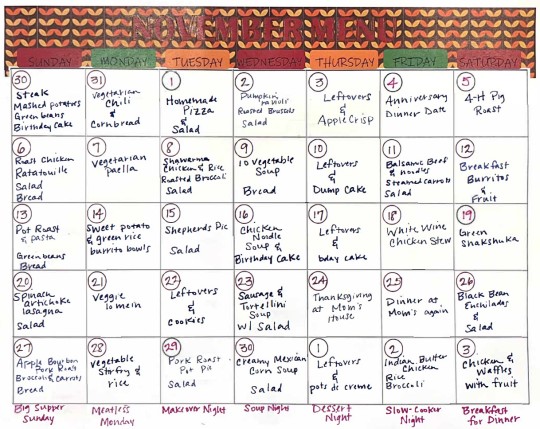 NOVEMBER MENU
SUNDAY MONDAY TUESDAY WEDNESDAY THURSDAY FRIDAY SATURDAY
30
Steak
Mashed potatoes
Green beans
Birthday cake
31
Vegetarian
Chili
&
Cornbread
1
Homemade
Pizza
&
Salad
2
Pumpkin
ravioli
Roasted Brussels
Salad
3
Leftovers
&
Apple Crisp
4
Anniversary
Dinner Date
5
4-H Pig
Roast
6
Roast Chicken
Ratatouille
Salad
Bread
7
Vegetarian
paella
8
Shawarma
Chicken & Rice
Roasted Broccoli
Salad
9
10 Vegetable
Soup
Bread
10
Leftovers
&
Dump Cake
11
Balsamic Beef
& noodles
Steamed carrots
Salad
12
Breakfast
Burritos
&
Fruit
13
Pot Roast
& pasta
Green beans
Bread
14
Sweet potato
& green rice
burrito bowls
15
Shepherds Pie
Salad
16
Chicken
Noodle
Soup &
Birthday Cake
17
Leftovers
&
bday cake
18
White Wine
Chicken Stew
19
Green
Shakshuka
20
Spinach
artichoke
lasagna
Salad
21
Veggie
lo mein
22
Leftovers
&
cookies
23
Sausage &
Tortellini
Soup
w/ Salad
24
Thanksgiving
at Mom's
House
25
Dinner at
Mom's again
26
Black Bean
Enchiladas
&
Salad
27
Apple Bourbon
Pork Roast
Broccoli & carrots
Bread
28
Vegetable
Stirfry &
rice
29
Pork Roast
Pot Pie
Salad
30
Creamy Mexican
Corn Soup
Salad
1
Leftovers
&
pots de creme
2
Indian Butter
Chicken
Rice
Broccoli
3
Chicken &
Waffles
with fruit
Big Supper
Sunday
Meatless
Monday
Makeover Night
Soup Night
Dessert
Night
Slow-Cooker
Night
Breakfast
for Dinner